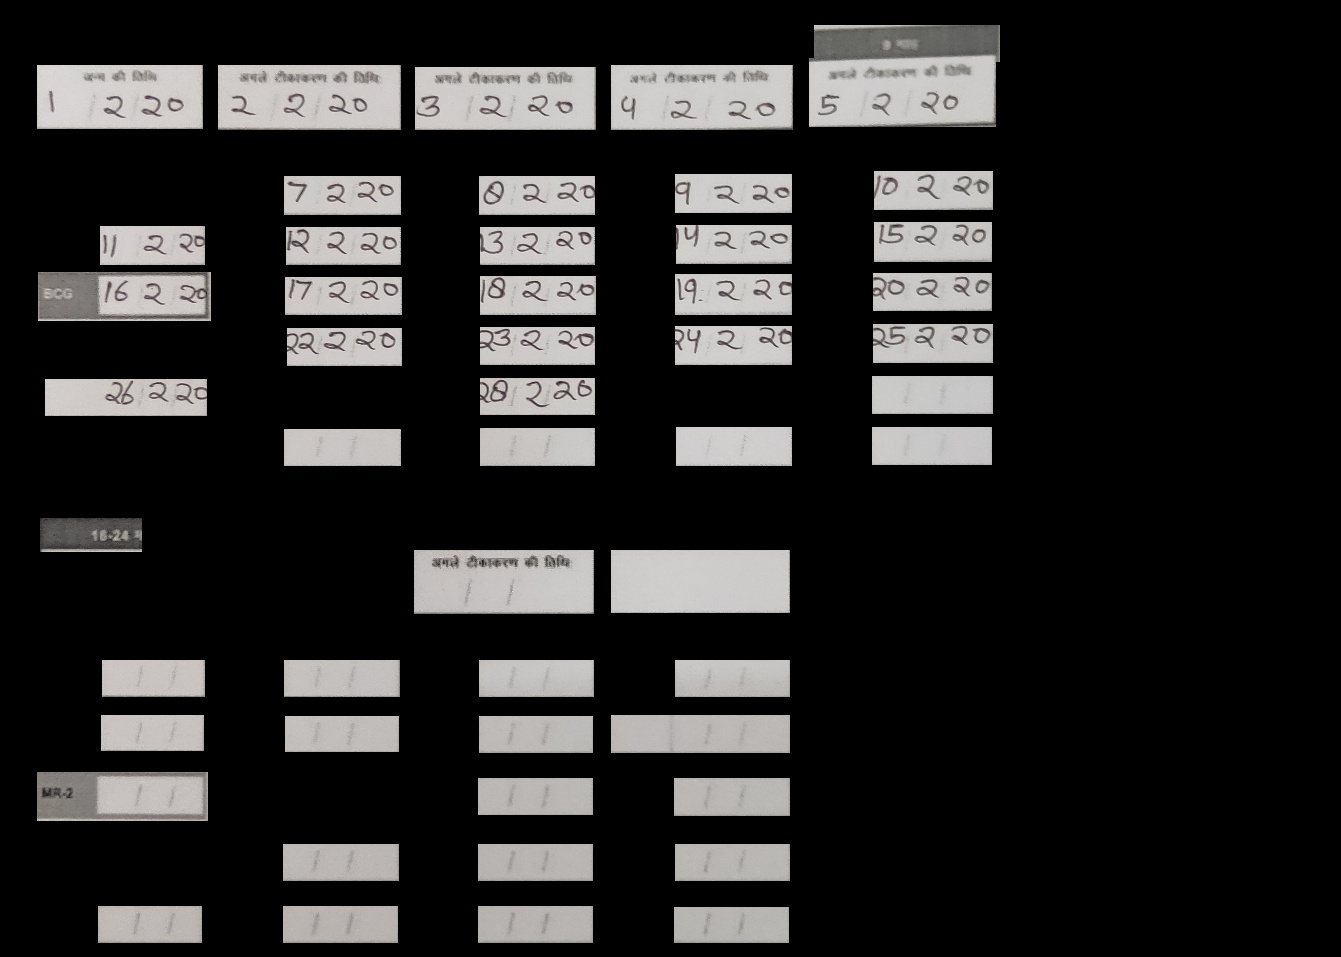 9 माह
जन्म की तिथि अगले टीकाकरण की तिथि अगले टीकाकरण की तिथि अगले टीकाकरण की तिथि अगले टीकाकरण की तिथि
1 / 2 / 20 2 / 2 / 20 3 / 2 / 20 4 / 2 / 20 5 / 2 / 20
7 / 2 / 20 8 / 2 / 20 9 / 2 / 20 10 / 2 / 20
11 / 2 / 20 12 / 2 / 20 13 / 2 / 20 14 / 2 / 20 15 / 2 / 20
BCG 16 / 2 / 20 17 / 2 / 20 18 / 2 / 20 19 / 2 / 20 20 / 2 / 20
22 / 2 / 20 23 / 2 / 20 24 / 2 / 20 25 / 2 / 20
26 / 2 / 20 28 / 2 / 20 / /
/ / / / / / / /
16-24
अगले टीकाकरण की तिथि
/ /
/ / / / / / / /
/ / / / / / / /
MR-2 / / / / / /
/ / / / / /
/ / / / / / / /